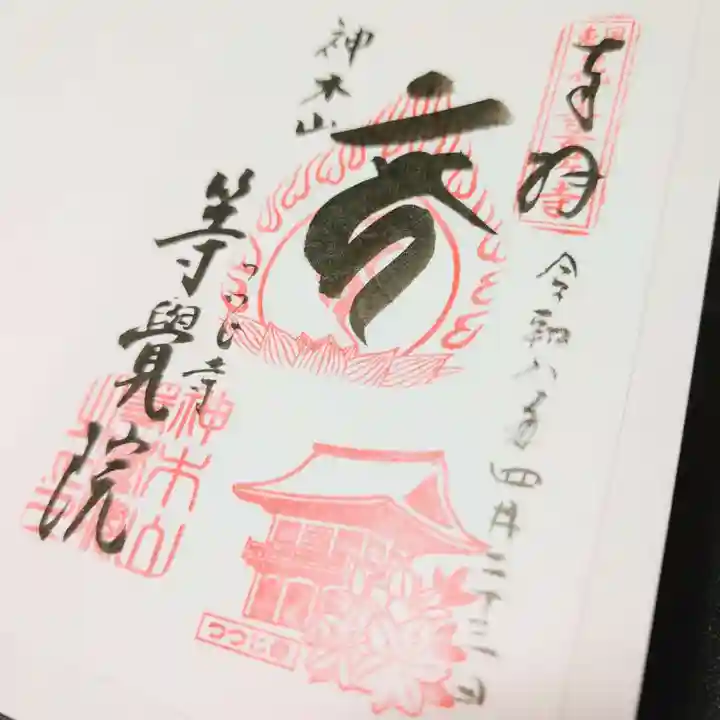 奉拝
令和八年四月二十三日
神木山
つつじ寺
等覺院
神木山